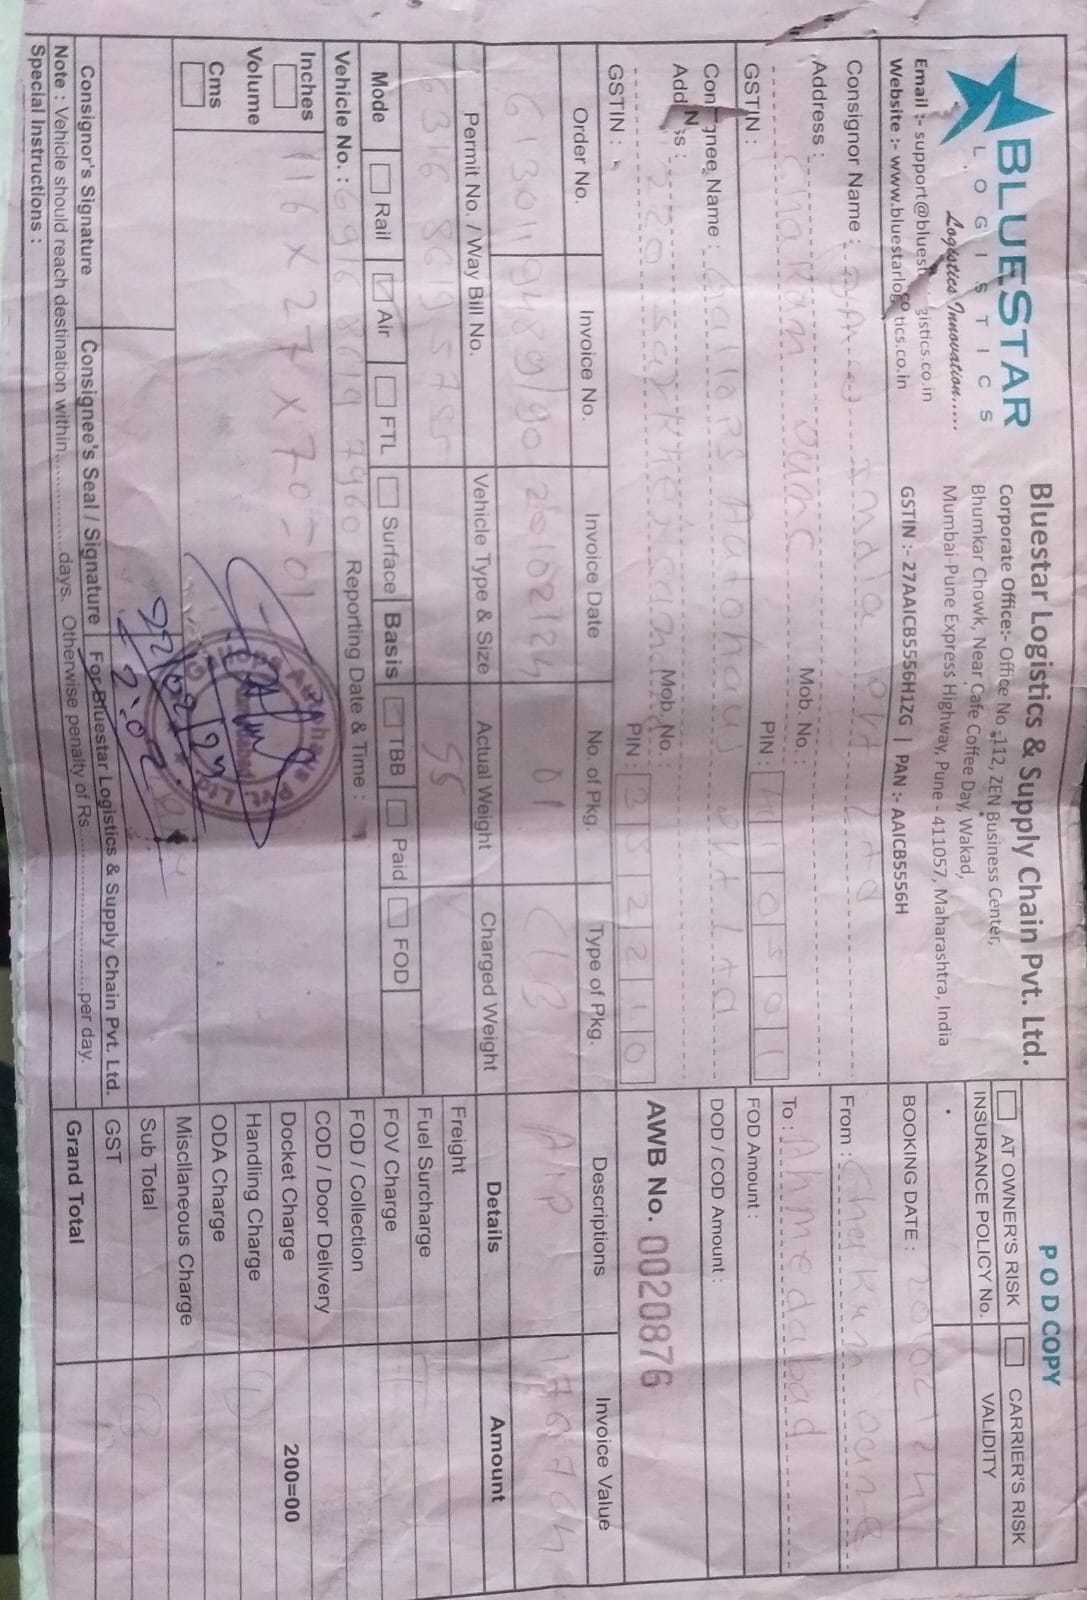 BLUESTAR
LOGISTICS
Logistics Innovation.....
Email :- support@bluest gistics.co.in
Website :- www.bluestarlogistics.co.in
Bluestar Logistics & Supply Chain Pvt. Ltd.
Corporate Office:- Office No :112, ZEN Business Center,
Bhumkar Chowk, Near Cafe Coffee Day, Wakad,
Mumbai-Pune Express Highway, Pune - 411057, Maharashtra, India
GSTIN :- 27AAICB5556H1ZG | PAN :- AAICB5556H
POD COPY
AT OWNER'S RISK CARRIER'S RISK
INSURANCE POLICY No. VALIDITY
BOOKING DATE : 20/02/24
Consignor Name : India Pvt Ltd
From : Chakan
Address : Chakan
Mob. No. :
To : Ahmedabad
PIN : 410501
GSTIN :
FOD Amount :
Consignee Name : Gallops Autohaus Pvt Ltd
DOD / COD Amount :
Address : 220 Sarkhej
Mob. No. :
AWB No. 0020876
PIN : 382210
GSTIN :
Order No. Invoice No. Invoice Date No. of Pkg. Type of Pkg. Descriptions Invoice Value
613011 9489/90 20/02/24 01 C/B A/P
Permit No. / Way Bill No. Vehicle Type & Size Actual Weight Charged Weight Details Amount
6316 8619 5755 55
Freight
Fuel Surcharge
Mode Rail Air FTL Surface Basis TBB Paid FOD
FOV Charge
Vehicle No. : 6916 8619 7960 Reporting Date & Time :
FOD / Collection
Inches
116 x 27 x 70 = 01
COD / Door Delivery
Docket Charge 200=00
Volume
Handling Charge
Cms
ODA Charge
Gallops Autohaus Pvt. Ltd.
Ahmedabad
22/02/24
2:02
Miscllaneous Charge
Sub Total
GST
Grand Total
Consignor's Signature Consignee's Seal / Signature For Bluestar Logistics & Supply Chain Pvt. Ltd.
Note : Vehicle should reach destination within..................days. Otherwise penalty of Rs..............................per day.
Special Instructions :